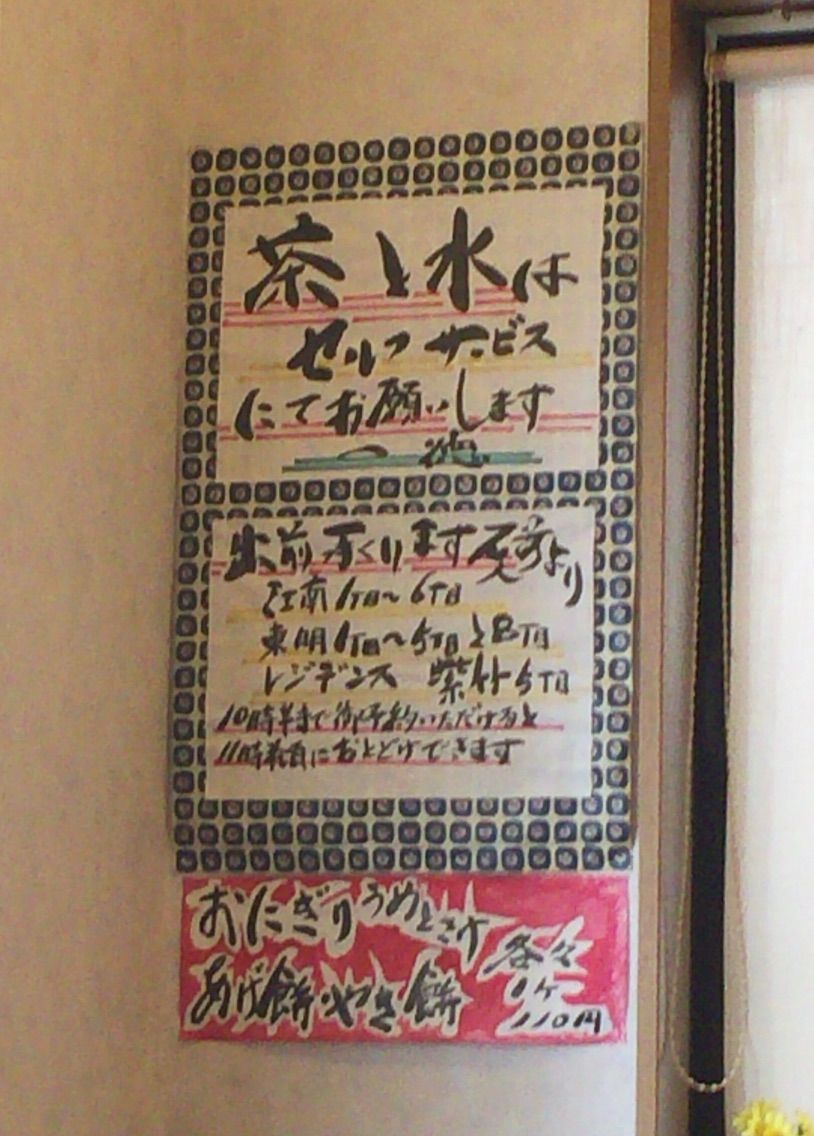 茶と水は
セルフサービス
にてお願いします
出前承ります
江南1丁目〜6丁目
東明1丁目〜5丁目と8丁目
レジデンス 紫竹5丁目
10時半まで御予約いただけると
11時半頃におとどけできます
おにぎりうめとさけ
あげ餅・やき餅
各々
1ケ
110円